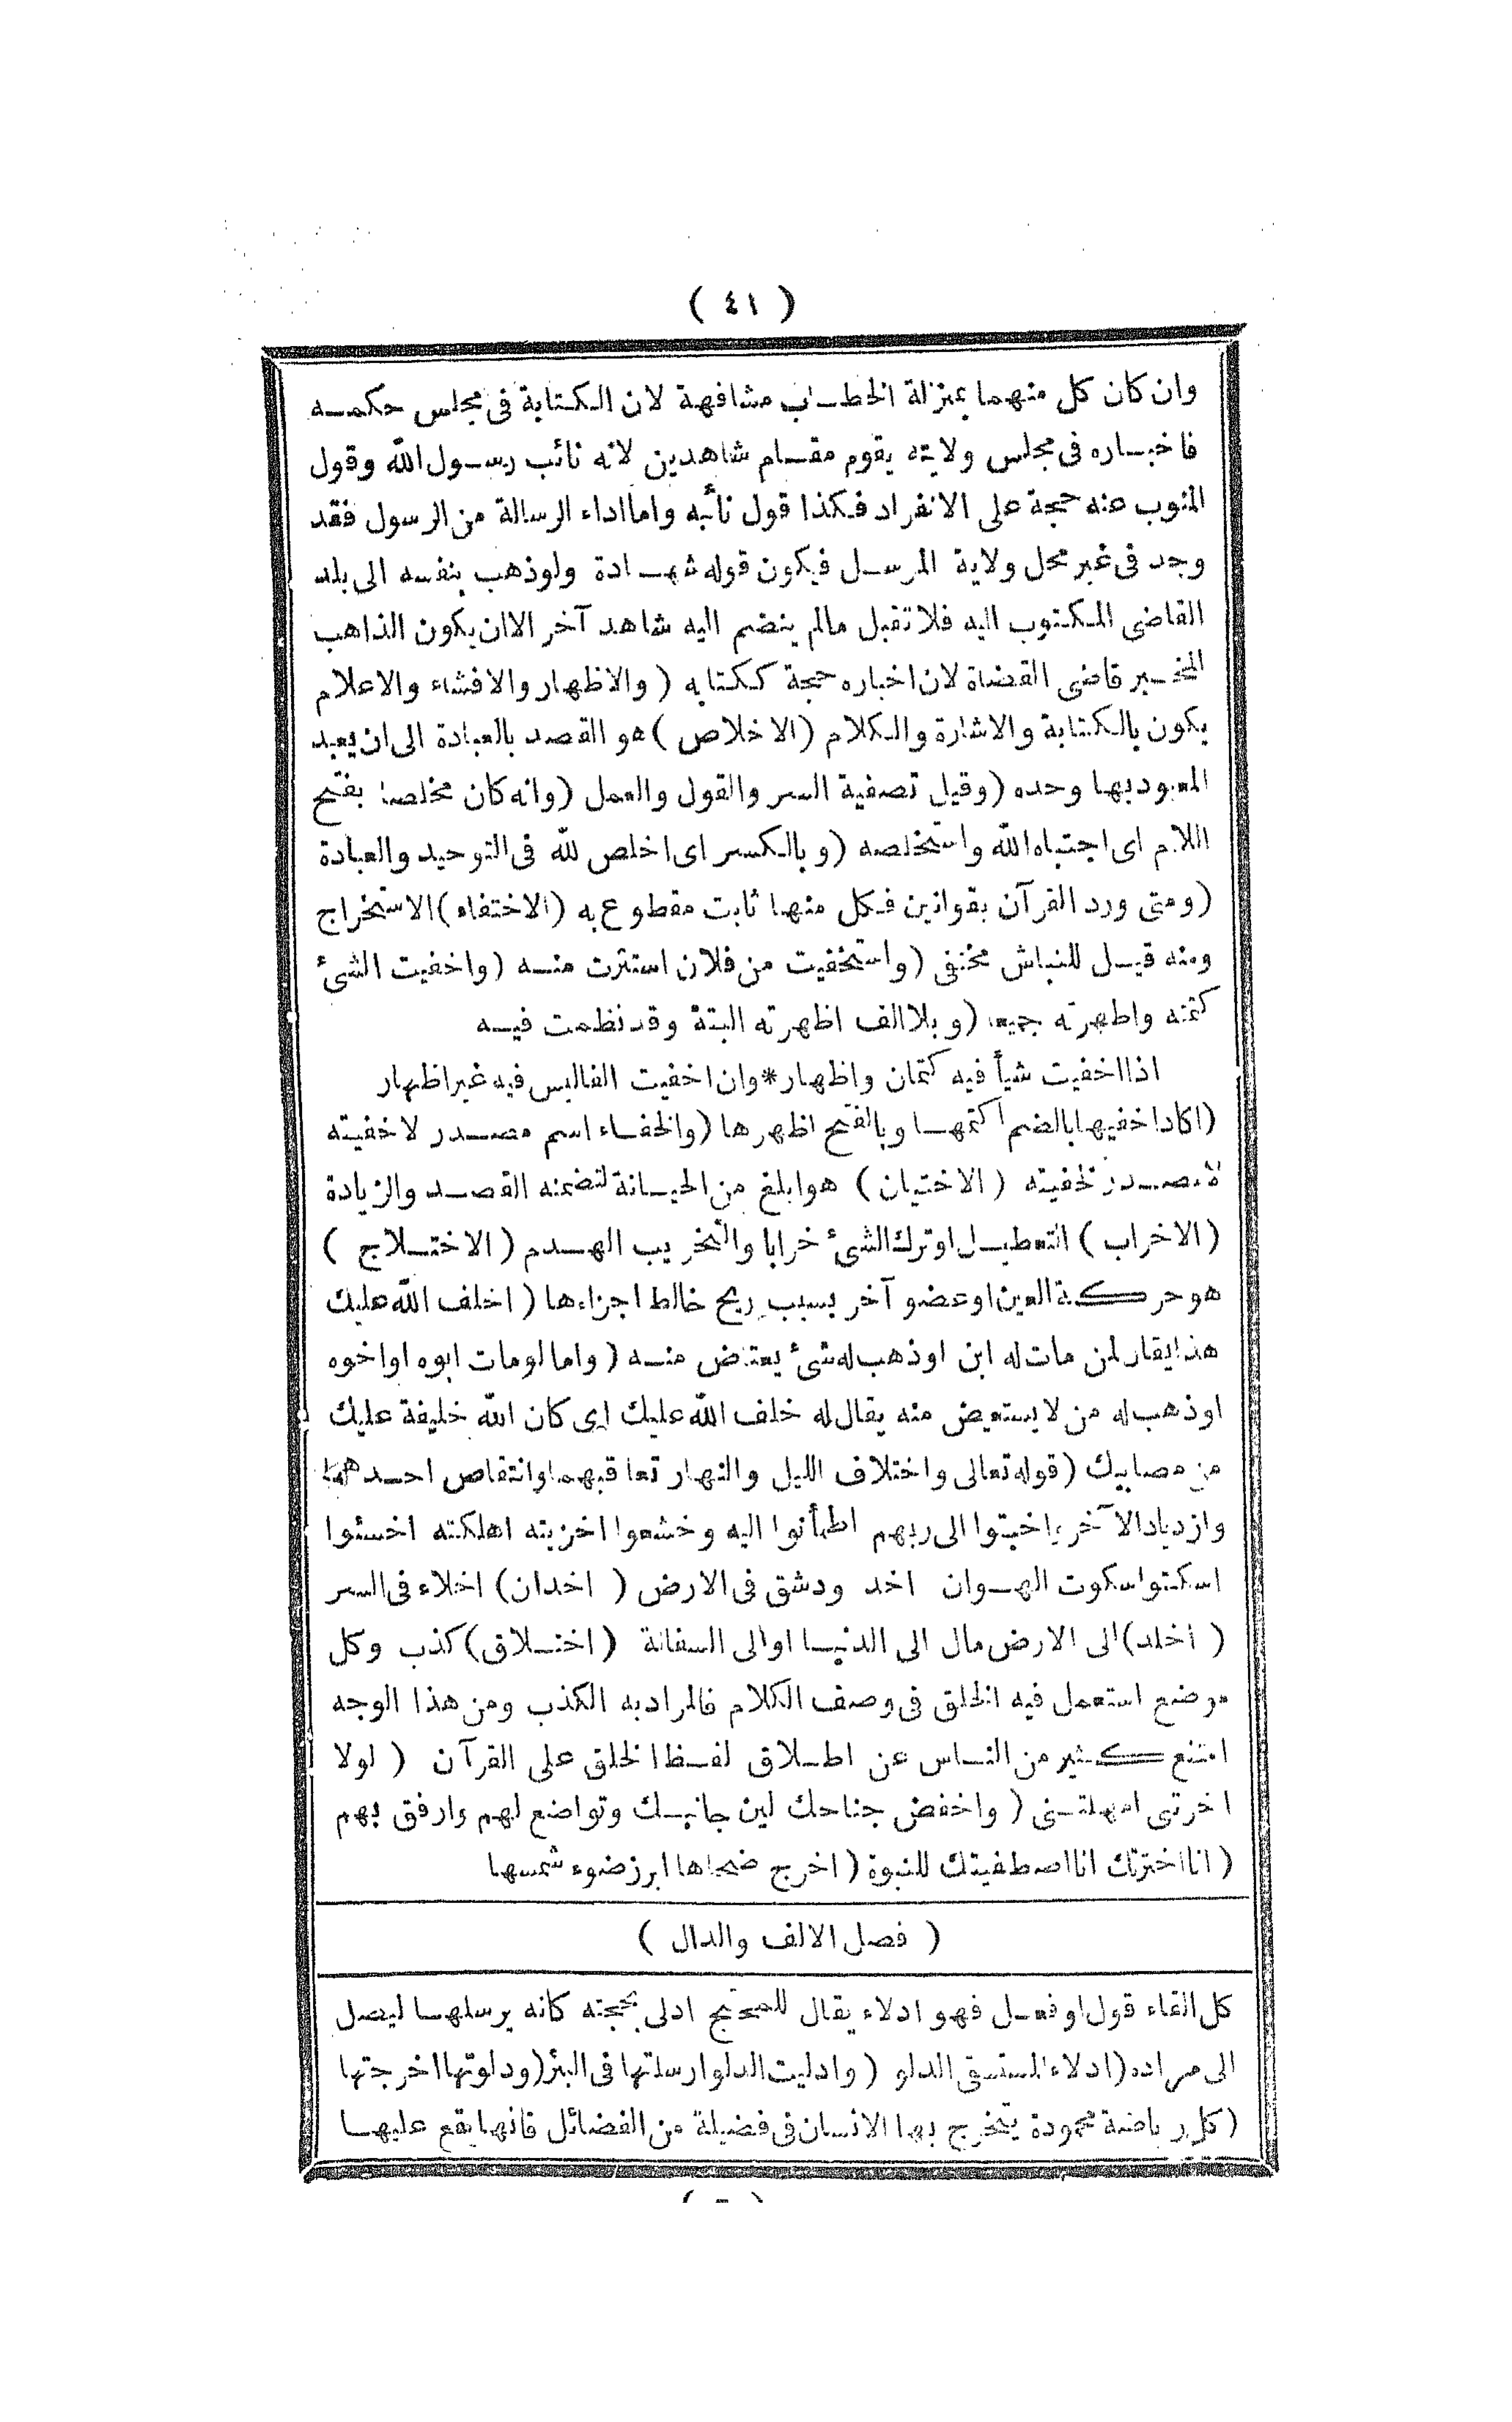 ( ٤١ )
وان كان كل منهما بمنزلة الخطاب مشافهة لان الكتابة فى مجلس حكمه
فاخباره فى مجلس ولايته يقوم مقام شاهدين لانه نائب رسول الله وقول
المنوب عنه حجة على الانفراد فكذا قول نائبه واما اداء الرسالة من الرسول فقد
وجد فى غير محل ولاية المرسل فيكون قوله شهادة ولو ذهب بنفسه الى بلد
القاضى المكتوب اليه فلا تقبل مالم ينضم اليه شاهد آخر الا ان يكون الذاهب
المخبر قاضى القضاة لان اخباره حجة ككتابه ( والاظهار والافشاء والاعلام
يكون بالكتابة والاشارة والكلام ( الاخلاص ) هو القصد بالعبادة الى ان يعبد
المعبود بها وحده ( وقيل تصفية السر والقول والعمل ( وانه كان مخلصا بفتح
اللام اى اجتباه الله واستخلصه ( وبالكسر اى اخلص لله فى التوحيد والعبادة
( ومتى ورد القرآن بقوانين فكل منها ثابت مقطوع به ( الاختفاء ) الاستخراج
ومنه قيل للنباش مختفى ( واستخفيت من فلان استترت منه ( واخفيت الشئ
كتمته واظهرته جميعا ( وبلا الف اظهرته البتة وقد نظمت فيه
اذا اخفيت شيأ فيه كتمان واظهار * وان اخفيت الفاليس فيه غير اظهار
( اكاد اخفيها بالضم اكتمها وبالفتح اظهرها ( والخفاء اسم مصدر لاخفيته
لا مصدر لخفيته ( الاختيان ) هو ابلغ من الخيانة لتضمنه القصد والزيادة
( الاخراب ) التعطيل او ترك الشئ خرابا والتخريب الهدم ( الاختلاج )
هو حركة العين او عضو آخر بسبب ريح خالط اجزاءها ( اخلف الله عليك
هذا يقال لمن مات له ابن او ذهب له شئ يعتاض منه ( واما لو مات ابوه او اخوه
او ذهب له من لا يستعيض منه يقال له خلف الله عليك اى كان الله خليفة عليك
من مصابيك ( قوله تعالى واختلاف الليل والنهار تعاقبهما وانتقاص احدهما
وازدياد الآخر واخبتوا الى ربهم اطمأنوا اليه وخشعوا اخزيته اهلكته اخسئوا
اسكتوا سكوت الهوان اخدود شق فى الارض ( اخدان ) اخلاء فى السر
( اخلد ) الى الارض مال الى الدنيا او الى السفالة ( اختلاق ) كذب وكل
موضع استعمل فيه الخلق فى وصف الكلام فالمراد به الكذب ومن هذا الوجه
امتنع كثير من الناس عن اطلاق لفظ الخلق على القرآن ( لولا
اخرتنى امهلتنى ( واخفض جناحك لين جانبك وتواضع لهم وارفق بهم
( انا اخترتك انا اصطفيتك للنبوة ( اخرج ضحاها ابرز ضوء شمسها
( فصل الالف والدال )
كل القاء قول او فعل فهو ادلاء يقال للمحتج ادلى بحجته كانه يرسلها ليصل
الى مراده ( ادلاء المستسقى الدلو ( وادليت الدلو ارسلتها فى البئر ( ودلوتها اخرجتها
( كل رياضة محمودة يتخرج بها الانسان فى فضيلة من الفضائل فانها يقع عليها